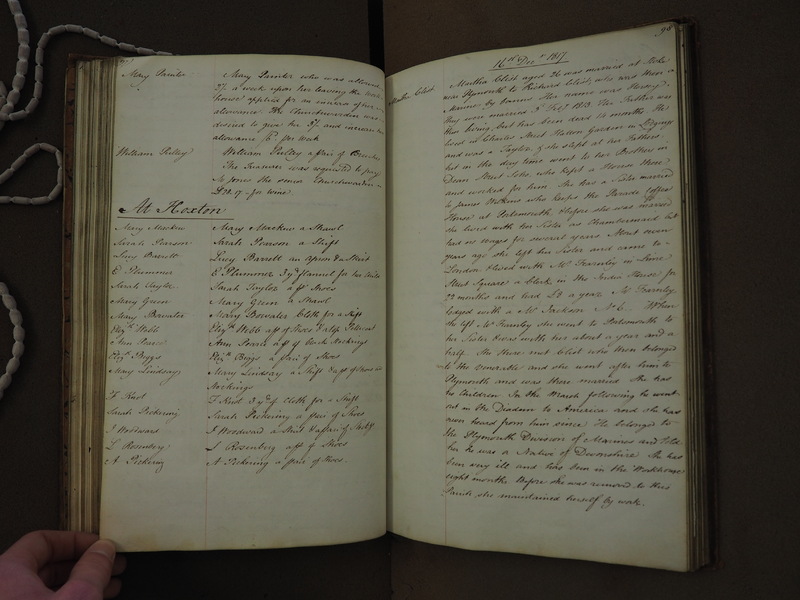 Mary Painter
Mary Painter who was allowed
2/ a week upon her leaving the Work
house applied for an increase of her
allowance The Churchwarden was
desired to give her 5/ and increase her
allowance /6 per week
William Pulley
William Pulley a pair of Breeches
The Treasurer was requested to pay
Mr Jones the senior Churchwarden
£28.17 - for wine
At Hoxton
Mary Mackew Mary Mackew a Shawl
Sarah Pearson Sarah Pearson a Shift
Lucy Barrett Lucy Barrett an apron & a Skirt
E Plummer E Plummer 3 yds flannel for her Child
Sarah Taylor Sarah Taylor a pr Shoes
Mary Green Mary Green a Shawl
Mary Bowater Mary Bowater Cloth for a Shift
Elizth Webb Elizth Webb a pr of Shoes & a Slip Petticoat
Ann Pearce Ann Pearce a pr of Stockings
Elizth Biggs Elizth Biggs a pair of Shoes
Mary Lindsay Mary Lindsay a Shift & a pr of Shoes &
Stockings
F Knot F Knot 3 yds of Cloth for a Shift
Sarah Pickering Sarah Pickering a pair of Shoes
J Woodward J Woodward a Skirt & a pair of
L Rosenberg L Rosenberg a pr of Shoes
A Pickering A Pickering a pair of Shoes.
98
16th Decr 1817
Martha Clist
Martha Clist aged 26 was married at Stoke
near Plymouth to Richard Clist, who was then a
Marine by banns Her name was Henry.
they were married 5 Feby 1813. Her Father was
then living but has been dead 18 months He
lived in Charles Street Hatton Garden in
and was a Taylor & she slept at her Fathers
but in the day time went to her Brothers in
Dean Street Soho, who kept a House there
and worked for him. She has a Sister married
to James Watkins who keeps the Parade Coffee
House at Portsmouth & before she was married
she lived with her Sister as Chambermaid but
had no wages for several years About seven
years ago she left her Sister and came to
London & lived with Mr Farnley in Lime
Street Square a Clerk in the India House for
22 months and had £8 a year. Mr Farnley
lodged with a Mr Jackson No 6. When
she left Mr Farnley she went to Portsmouth to
her Sister & was with her about a year and a
half. She there met Clist who then belonged
to the Venerable and she went after him to
Plymouth and was there married She has
no Children In the March following he went
out in the Diadem to America and she has
never heard from him since He belonged to
the Plymouth Division of Marines and told
her he was a Native of Devonshire She has
been very ill and has been in the Workhouse
eight months. Before she was removed to this
Parish she maintained herself by work.